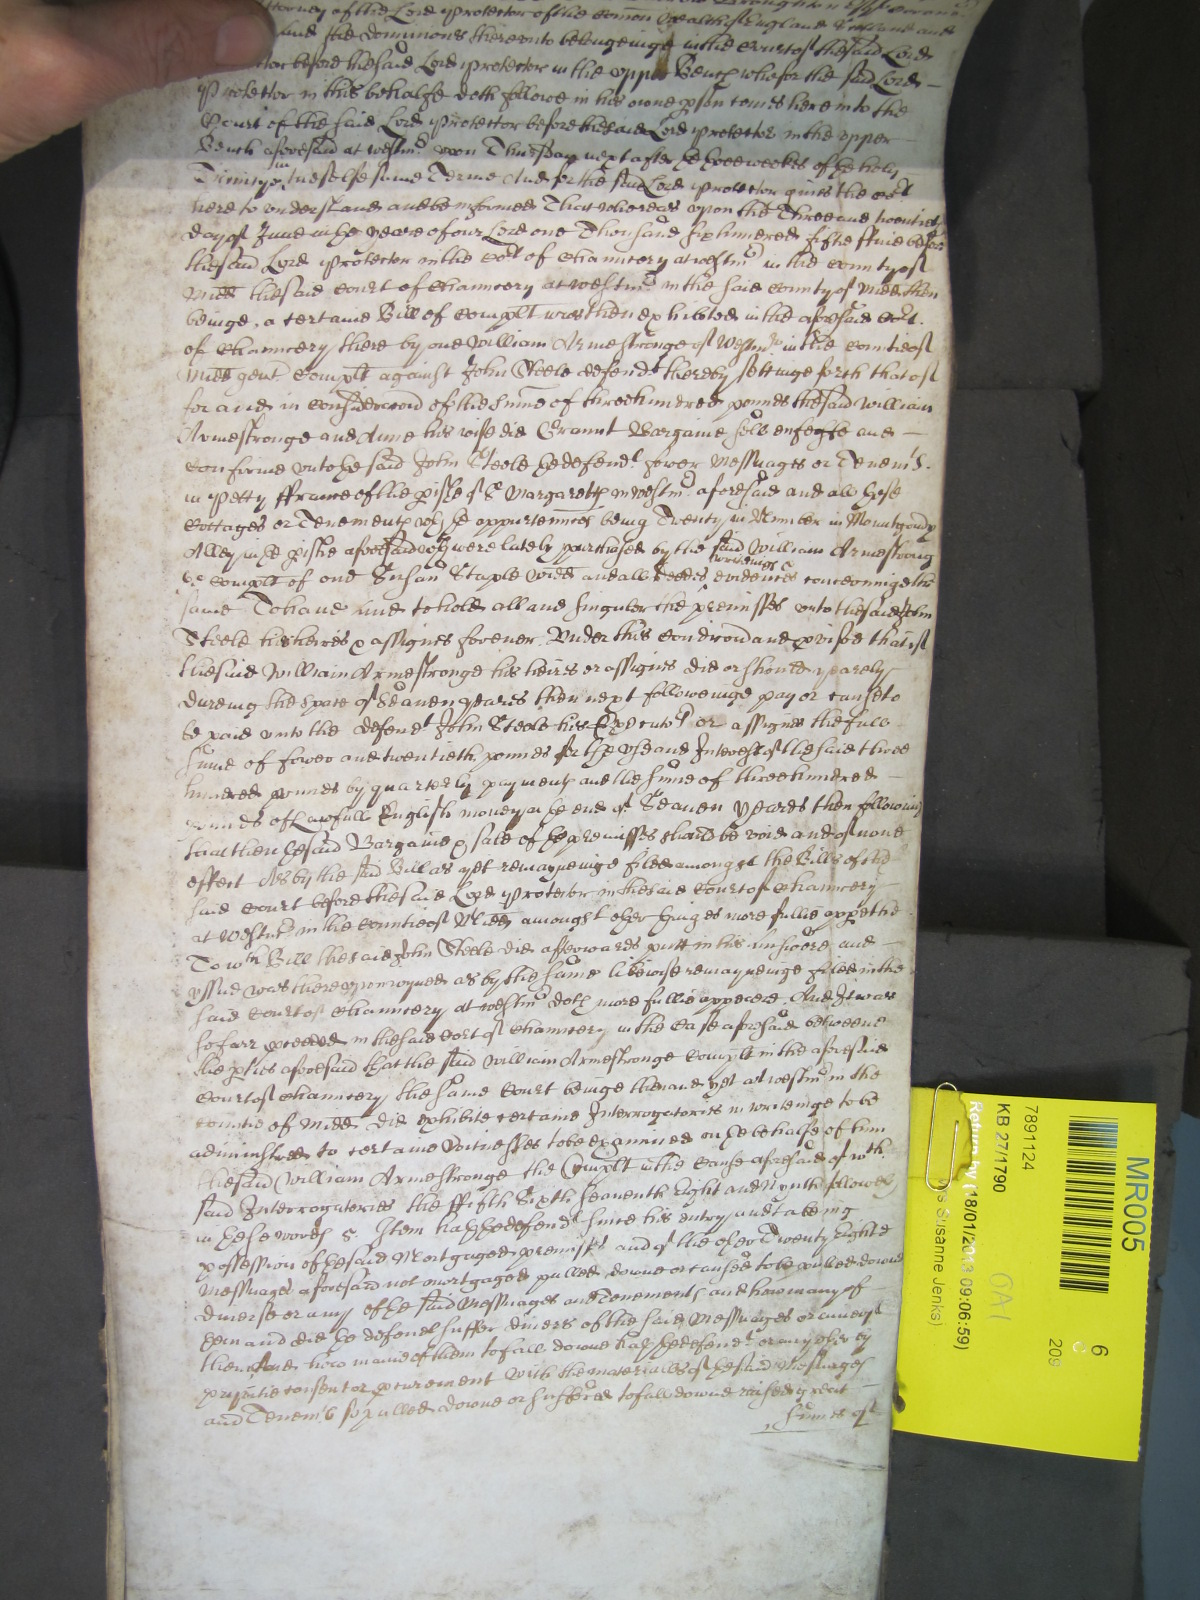 Attorney of the Lord Protector of the Comon Wealth of England Scotland and
and the dominions thereunto belonginge in the Court of the said Lord
before the said Lord Protector in the upper Bench who for the said Lord
Protector in this behalfe doth followe in his owne pson comes here into the
Court of the said Lord Protector before the said Lord Protector in the upper
Bench aforesaid at Westmr upon Thursday next after three weekes of the holy
Trinity in the selfe same Terme And for the said Lord Protector gives the Cort
here to understand and be informed That whereas upon the Three and twentieth
day of June in the yeare of our Lord one Thousand six hundred fiftie five before
the said Lord Protector in the Cort of Chauncery at Westmr in the County of
Midd the said Court of Chauncery at Westmr in the said County of Midd then
beinge, a certaine Bill of Complt was then exhibited in the aforesaid Cort
of Chauncery there by one William Armestronge of Westmr in the Countie of
Midd gent Complt against John Steele defendt thereby settinge forth that
for and in consideracon of the sume of three hundred pounds the said William
Armestronge and Anne his wife did Graunt Bargaine sell enfeoffe and
confirme unto the said John Steele the defendt fower Messuages or Tenemts
in Petty ffrance of the pishe of St Margaretts in Westmr aforesaid and all those
Cottages or Tenements wth the appurtenncs being Twenty in Number in Mountgomy
Alley in the pishe aforesaid wch were lately purchased by the said William Armestrong
the complt of one Susan Staple widd and all deeds writeings evidences concerninge the
same To have And to hold all and singuler the premisses unto the said John
Steele his heires & assignes forever. Under this condicon and proviso that if
the said William Armestronge his heires or assignes did or should yearely
dureing the space of Seaven yeares then next followeinge pay or cause to
be paid unto the defendt John Steele his Executrs or assignes the full
sume of fower and twentieth pounds for the use and Interest of the said three
hundred pounds by quarterly payments and the sume of three hundred
pounds of Lawfull English money at the end of Seaven yeares then following
that then the said Bargaine & sale of the premisses should be void and of none
effect As by the said Bill as yet remayneinge filed amongst the Bills of the
said Court before the said Lord Protector in the said Court of Chauncery
at Westmr in the Countie of Midd amongst other things more fullie appeareth
To wch Bill the said John Steele did afterwards putt in his Answere and
yssue was thereupon joyned as by the same likewise remayneinge filed in the
said Court of Chauncery at Westmr doth more fullie appeare. And It was
so farr proceeded in the said Cort of Chauncery in the Case aforesaid betweene
the pties aforesaid that the said William Armestronge Complt in the aforesaid
Court of Chauncery the same Court beinge then and yet at Westmr in the
Countie of Midd did exhibite certaine Interrogatories in writeinge to be
administred to certaine Witnesses to be examined on the behalfe of him
the said William Armestronge the Complt in the cause aforesaid of wch
said Interrogatories the ffifth Sixth Seaventh Eight and Nynth followeth
in these words 5. Item hath the defendt since his entry and takeing
possession of the said Mortgaged premisses and of the other Twenty Eight
Messuages aforesaid not mortgaged pulled downe or caused to be pulled downe
diverse or any of the said Messuages and Tenements and how many of
them and did the defendt suffer divers of the said Messuages or any of
them And how manie of them to fall downe hath the defendt or any other by
privitie consent or procurement with the materialls of the said Messuages
and Tenemts so pulled downe or suffered to fall downe raised great
sumes of
MR005
7891124
KB 27/1790
Return by (18/01/2013 09:06:59)
Susanne Jenks)
6
209